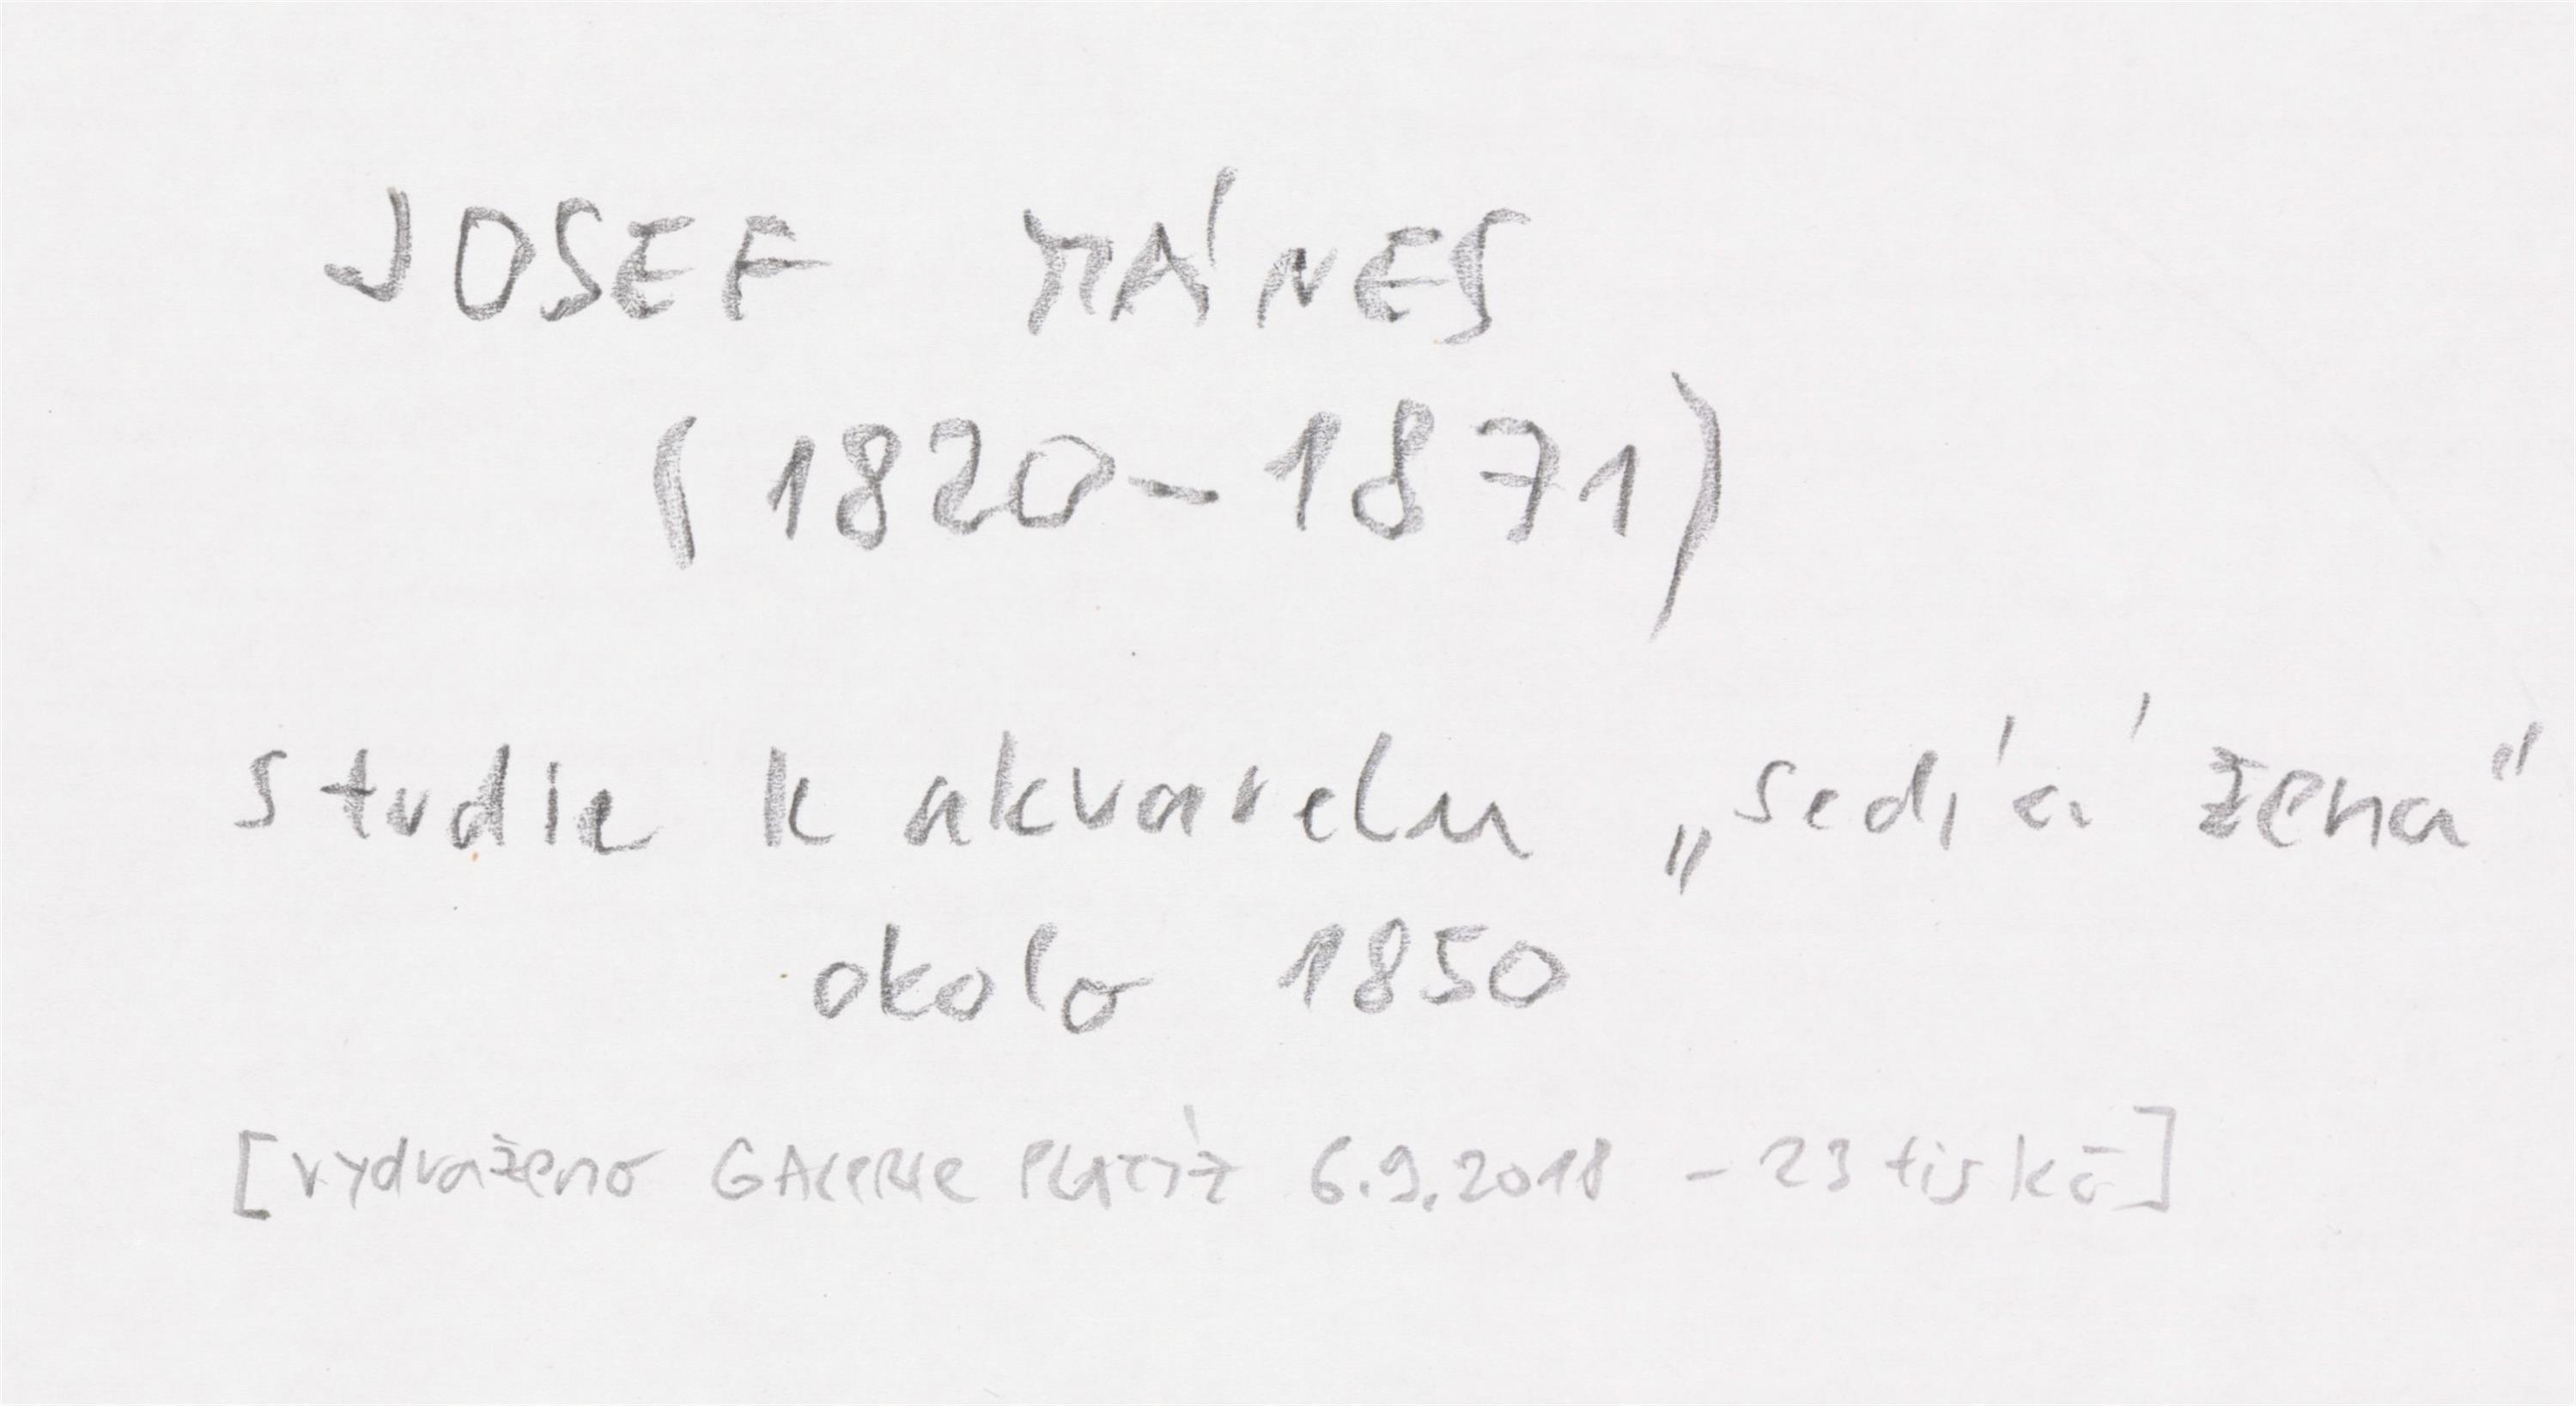 JOSEF MÁNES
(1820-1871)
studie k akvarelu „sedící žena"
okolo 1850
[vydraženo GALERIE PLATÝZ 6.9.2018 - 23 tisk]